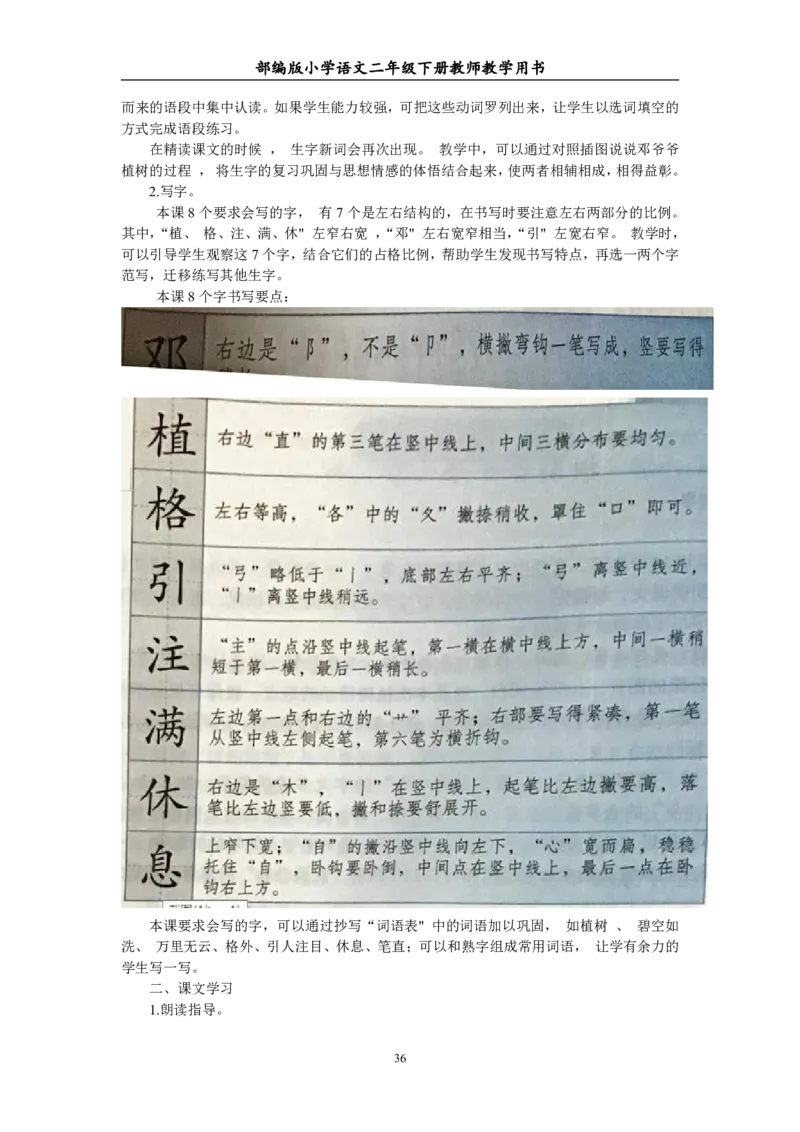 部编版小学语文二年级下册教师教学用书
而来的语段中集中认读。如果学生能力较强，可把这些动词罗列出来，让学生以选词填空的
方式完成语段练习。
在精读课文的时候 ， 生字新词会再次出现。 教学中，可以通过对照插图说说邓爷爷
植树的过程 ，将生字的复习巩固与思想情感的体悟结合起来，使两者相辅相成，相得益彰。
2.写字。
本课 8 个要求会写的字， 有 7 个是左右结构的，在书写时要注意左右两部分的比例。
其中，“植、 格、注、满、休" 左窄右宽 ，“邓" 左右宽窄相当，“引" 左宽右窄。 教学时，
可以引导学生观察这 7 个字，结合它们的占格比例，帮助学生发现书写特点，再选一两个字
范写，迁移练写其他生字。
本课 8 个字书写要点：
邓 右边是“阝”，不是“卩”，横撇弯钩一笔写成，竖要写得
植 右边“直”的第三笔在竖中线上，中间三横分布要均匀。
格 左右等高，“各”中的“夂”撇捺稍收，罩住“口”即可。
引 “弓”略低于“丨”，底部左右平齐；“弓”离竖中线近，
“丨”离竖中线稍远。
注 “主”的点沿竖中线起笔，第一横在横中线上方，中间一横稍
短于第一横，最后一横稍长。
满 左边第一点和右边的“艹” 平齐；右部要写得紧凑，第一笔
从竖中线左侧起笔，第六笔为横折钩。
休 右边是“木”，“丨”在竖中线上，起笔比左边撇要高，落
笔比左边竖要低，撇和捺要舒展开。
息 上窄下宽；“自”的撇沿竖中线向左下，“心”宽而扁，稳稳
托住“自”，卧钩要卧倒，中间点在竖中线上，最后一点在卧
钩右上方。
本课要求会写的字，可以通过抄写“词语表" 中的词语加以巩固， 如植树 、 碧空如
洗、 万里无云、格外、引人注目、休息、笔直；可以和熟字组成常用词语， 让学有余力的
学生写一写。
二、课文学习
1.朗读指导。
36